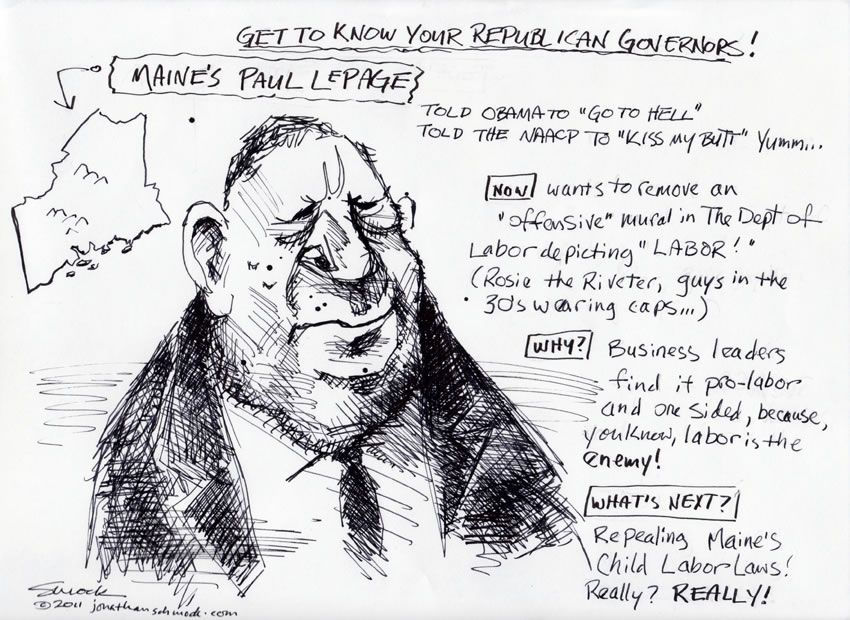 GET TO KNOW YOUR REPUBLICAN GOVERNORS!
MAINE'S PAUL LEPAGE
TOLD OBAMA TO "GO TO HELL"
TOLD THE NAACP TO "KISS MY BUTT" Yumm...
NOW wants to remove an
"offensive" mural in The Dept of
Labor depicting "LABOR!"
(Rosie the Riveter, guys in the
30's wearing caps...)
WHY? Business leaders
find it pro-labor
and one sided, because,
you know, labor is the
enemy!
WHAT'S NEXT?
Repealing Maine's
Child Labor Laws!
Really? REALLY!
Schmock
©2011 jonathanschmock.com